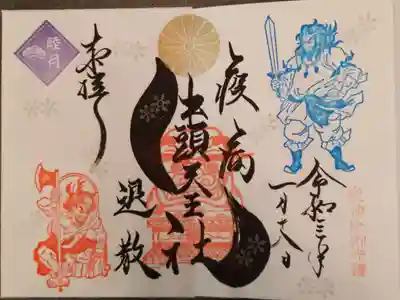 令和三年
一月六日
疫病
牛頭天王社
退散
奉拝
睦月